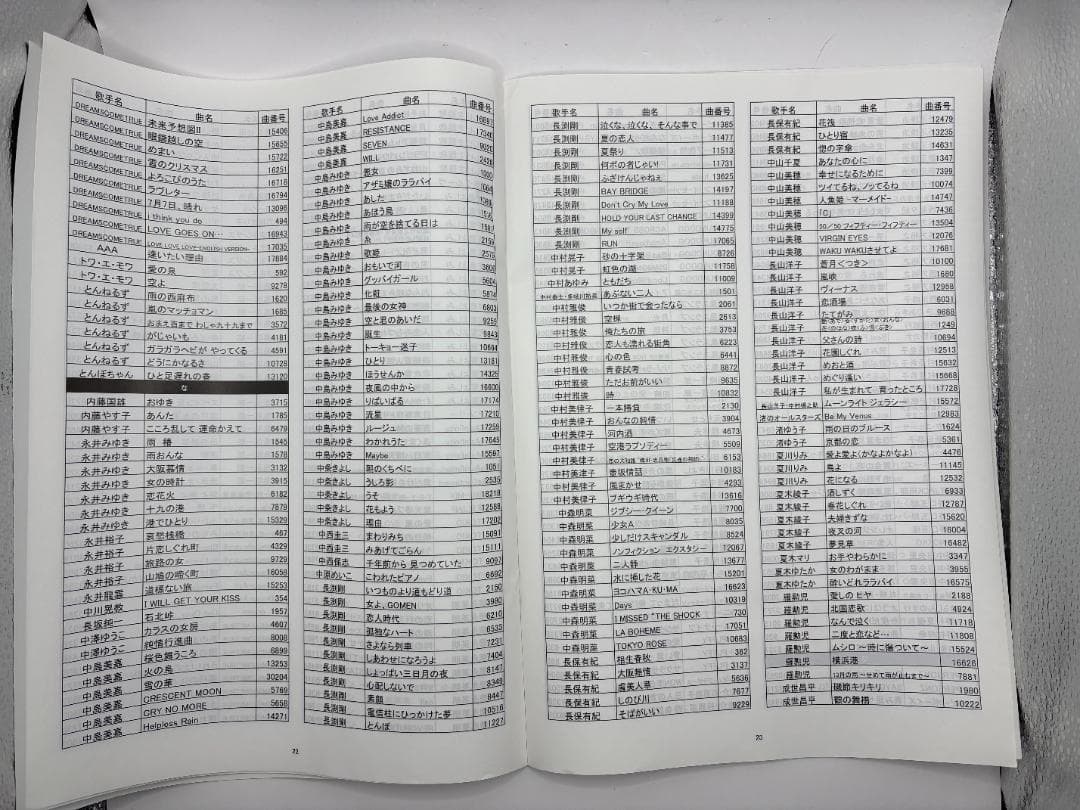 歌手名 曲名 曲番号
DREAMSCOMETRUE 未来予想図II 15406
DREAMSCOMETRUE 眼鏡越しの空 15655
DREAMSCOMETRUE めまい 15722
DREAMSCOMETRUE 雪のクリスマス 16251
DREAMSCOMETRUE よろこびのうた 16718
DREAMSCOMETRUE ラブレター 16794
DREAMSCOMETRUE 7月7日、晴れ 13096
DREAMSCOMETRUE I think you do 494
DREAMSCOMETRUE LOVE GOES ON… 16943
DREAMSCOMETRUE LOVE LOVE LOVE-ENGLISH VERSION- 17035
AAA 逢いたい理由 17884
トワ・エ・モワ 愛の泉 592
トワ・エ・モワ 空よ 9278
とんねるず 雨の西麻布 1620
とんねるず 嵐のマッチョマン 1685
とんねるず おまえ百まで わしゃ九十九まで 3572
とんねるず がじゃいも 4181
とんねるず ガラガラヘビが やってくる 4591
とんねるず どうにかなるさ 10728
とんぼちゃん ひと足遅れの春 13120
な
内藤国雄 おゆき 3715
内藤やす子 あんた 1785
内藤やす子 こころ乱して 運命かえて 6479
永井みゆき 雨 椿 1545
永井みゆき 雨おんな 1578
永井みゆき 大阪慕情 3132
永井みゆき 女の時計 3915
永井みゆき 恋花火 6182
永井みゆき 十九の港 7879
永井みゆき 港でひとり 15329
永井裕子 哀愁桟橋 467
永井裕子 片恋しぐれ町 4329
永井裕子 旅路の女 9729
永井裕子 山鳩の啼く町 16058
永井龍雲 道標ない旅 15253
中川晃教 I WILL GET YOUR KISS 354
長坂純一 石北峠 1957
中澤ゆうこ カラスの女房 4607
中澤ゆうこ 純情行進曲 8008
中島美嘉 桜色舞うころ 6899
中島美嘉 火の鳥 13253
中島美嘉 雪の華 30204
中島美嘉 CRESCENT MOON 5769
中島美嘉 CRY NO MORE 5658
中島美嘉 Helpless Rain 14271
歌手名 曲名 曲番号
中島美嘉 Love Addict
中島美嘉 RESISTANCE
中島美嘉 SEVEN
中島美嘉 WILL
中島みゆき 悪女
中島みゆき アザミ嬢のララバイ
中島みゆき あした
中島みゆき あほう鳥
中島みゆき 雨が空を捨てる日は
中島みゆき 糸
中島みゆき 歌姫
中島みゆき おもいで河
中島みゆき グッバイガール
中島みゆき 化粧
中島みゆき 最後の女神
中島みゆき 空と君のあいだ
中島みゆき 誕生 9843
中島みゆき トーキョー迷子 10694
中島みゆき ひとり 13181
中島みゆき ほうせんか 14325
中島みゆき 夜風の中から 16600
中島みゆき りばいばる 17174
中島みゆき 流星 17210
中島みゆき ルージュ 17256
中島みゆき わかれうた 17645
中島みゆき Maybe 15567
中条きよし 朝のくちべに 1051
中条きよし うしろ影 2535
中条きよし うそ 18218
中条きよし 花もよう 12588
中条きよし 理由 17202
中西圭三 まわりみち 15091
中西圭三 みあげてごらん 15111
中西保志 千年前から 見つめていた 9097
中原めいこ こわれたピアノ 6692
長渕剛 いつものより道もどり道 2150
長渕剛 女よ、GOMEN 3990
長渕剛 恋人時代 6210
長渕剛 孤独なハート 6535
長渕剛 さよなら列車 7231
長渕剛 しあわせになろうよ 7404
長渕剛 しょっぱい三日月の夜 8147
長渕剛 心配しないで 8349
長渕剛 素顔 8447
長渕剛 電信柱にひっかけた夢 10516
長渕剛 とんぼ 11227
22
歌手名 曲名 曲番号
長渕剛 泣くな、泣くな、そんな事で 11385
長渕剛 夏の恋人 11477
長渕剛 夏祭り 11513
長渕剛 何ボの者じゃい! 11731
長渕剛 ふざけんじゃねぇ 13625
長渕剛 BAY BRIDGE 14197
長渕剛 Don't Cry My Love 11188
長渕剛 HOLD YOUR LAST CHANCE 14399
長渕剛 My self 14775
長渕剛 RUN 17065
中村晃子 砂の十字架 8726
中村晃子 虹色の湖 11758
中村あゆみ ともだち 11009
あぶない二人 1501
中村雅俊 いつか街で会ったなら 2061
中村雅俊 空模 2813
中村雅俊 俺たちの旅 3753
中村雅俊 恋人も濡れる街角 6223
中村雅俊 心の色 6441
中村雅俊 青春試考 8872
中村雅俊 ただお前がいい 9635
中村雅俊 時 10832
中村美律子 一本勝負 2130
中村美律子 おんなの純情 3904
中村美律子 河内酒 4673
中村美律子 空港ラプソディー 5509
中村美律子 6153
中村美律子 壺坂情話 10183
中村美律子 風まかせ 4293
中村美律子 ブギウギ時代 13616
中森明菜 ジプシー・クイーン 7700
中森明菜 少女A 8035
中森明菜 少しだけスキャンダル 8524
中森明菜 ノンフィクション エクスタシー 12067
中森明菜 二人静 13677
中森明菜 水に挿した花 15201
中森明菜 ヨコハマA・KU・MA 16623
中森明菜 Days 10319
中森明菜 I MISSED "THE SHOCK 730
中森明菜 LA BOHEME 17051
中森明菜 TOKYO ROSE 10683
長保有紀 相生春秋 362
長保有紀 大阪難情 3137
長保有紀 虞美人草 5636
長保有紀 しのび川 7677
長保有紀 そばがいい 9229
歌手名 曲名 曲番号
長保有紀 花浅 12479
長保有紀 ひとり宿 13235
長保有紀 惚の字傘 14631
中山千夏 あなたの心に 1347
中山美穂 幸せになるために 7399
中山美穂 ツイてるね、ノッてるね 10074
中山美穂 人魚姫 -マーメイド- 14747
中山美穂 「C」 7436
中山美穂 50/50 フィフティー・フィフティー 13504
中山美穂 VIRGIN EYES 12076
中山美穂 WAKU WAKUさせてよ 17681
長山洋子 蒼月<つき> 10100
長山洋子 風吹 1680
長山洋子 ヴィーナス 12958
長山洋子 恋酒場 6031
長山洋子 たてがみ 9688
長山洋子 1249
長山洋子 父さんの詩 10694
長山洋子 花園しぐれ 12513
長山洋子 めおと酒 15632
長山洋子 めぐり逢い 15668
長山洋子 私が生まれて 育ったところ 17728
長山洋子・中村橋之助 ムーンライト ジェラシー 15572
渚のオールスターズ Be My Venus 12983
渚ゆう子 雨の日のブルース 1624
渚ゆう子 京都の恋 5361
夏川りみ 愛よ愛よ(かなよかなよ) 4476
夏川りみ 鳥よ 11145
夏川りみ 花になる 12532
夏木綾子 酒しずく 6933
夏木綾子 春花しぐれ 12787
夏木綾子 夫婦きずな 15620
夏木綾子 夜叉の河 16004
夏木綾子 夢見草 16482
夏木マリ お手やわらかに 3347
夏木ゆたか 女のわがまま 3955
夏木ゆたか 酔いどれララバイ 16575
羅勲児 愛しの ヒヤ 2188
羅勲児 北国恋歌 4924
羅勲児 なんで泣く 11718
羅勲児 二度と恋など… 11808
羅勲児 ムシロ ～時に傷ついて～ 15524
羅勲児 横浜港 16626
羅勲児 12月の雨 ～せめて雨が止むまで～ 7881
成世昌平 磯節キリキリ 1980
成世昌平 鶴の舞橋 10222